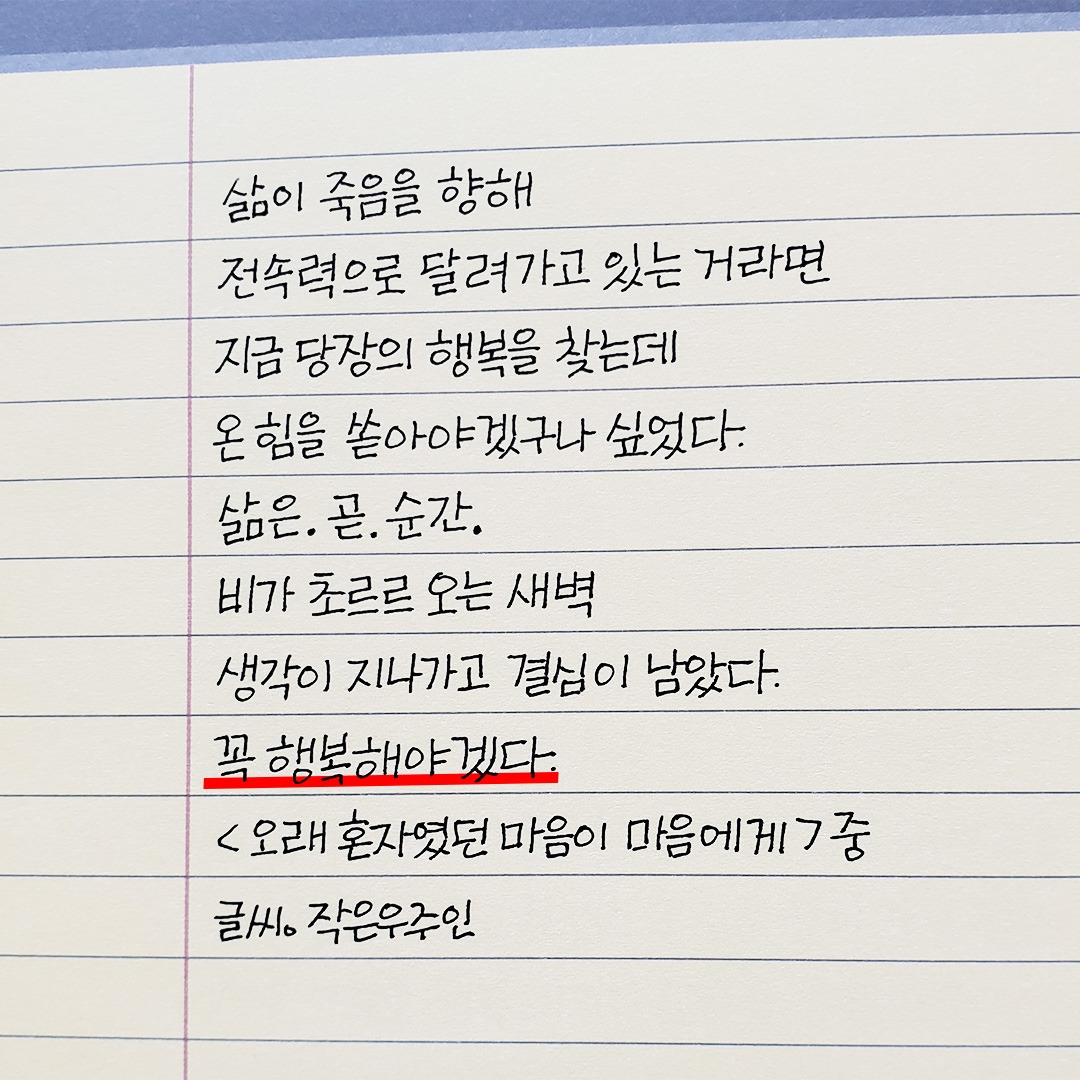 삶이 죽음을 향해
전속력으로 달려가고 있는 거라면
지금 당장의 행복을 찾는데
온 힘을 쏟아야겠구나 싶었다.
삶은. 곧. 순간.
비가 초르르 오는 새벽
생각이 지나가고 결심이 남았다.
꼭 행복해야겠다.
<오래 혼자였던 마음이 마음에게> 중
글씨。작은우주인